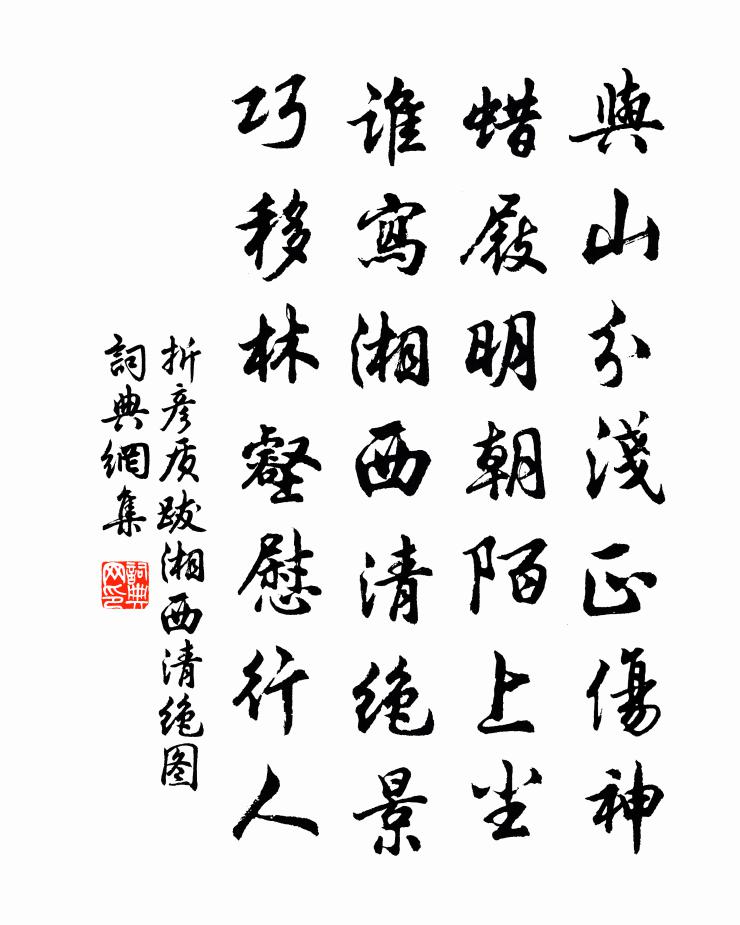 與山分淺正傷神
蜡屐明朝陌上尘
誰寫湘西清絶景
巧移林壑慰行人
折彦质跋湘西清絶图
詞典網集
詞典网印